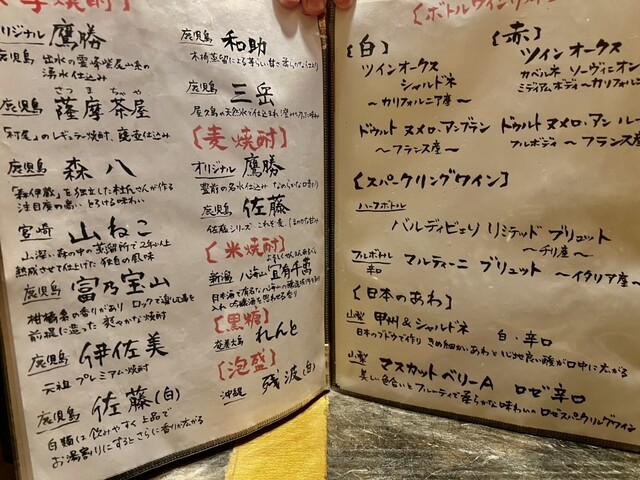 芋焼酎】
オリジナル 鷹勝
鹿児島 出水の雲峰紫尾山系の
湧水仕込み
さつま ちゃや
鹿児島 薩摩茶屋
「村尾」のレギュラー焼酎、甕壺仕込み
鹿児島 森八
「森伊蔵」を独立した杜氏さんが作る
注目度の高い とろける味わい
宮崎 山ねこ
山深い森の中の蒸留所で2年以上
熟成させて仕上げた 独自の風味
鹿児島 富乃宝山
柑橘系の香りがあり ロックで楽しむ事を
前提に造った 爽やかな焼酎
鹿児島 伊佐美
元祖プレミアム焼酎
鹿児島 佐藤(白)
白麹は飲みやすく上品で
お湯割りにするとさらに香りが広がる
鹿児島 和助
鹿児島 三岳
屋久島の天然水で仕込まれ
【麦焼酎】
オリジナル 鷹勝
豊前の名水仕込み なめらかな口当り
鹿児島 佐藤
佐藤シリーズ これぞ麦、ほのかな甘み
【米焼酎】
新潟 八海山 宜有千萬
日本酒で有名な八海山の
入れ 吟醸酒を思わせる香り
【黒糖】
奄美大島 れんと
【泡盛】
沖縄 残波(白)
【ボトルワインリスト
【白】
ツインオークス
シャルドネ
〜カリフォルニア産〜
ドゥルト ヌメロ・アンブラン
〜フランス産〜
【赤】
ツインオークス
カベルネ ソーヴィニオン
ミディアムボディ 〜カリフォル
ドゥルト ヌメロ・アン ルー
フルボディ 〜フランス産
【スパークリングワイン】
ハーフボトル
バルディビエソ リミテッド ブリュット
〜チリ産〜
フルボトル
辛口 マルティーニ ブリュット 〜イタリア産〜
【日本のあわ】
山梨 甲州&シャルドネ 白・辛口
日本のブドウで作り きめ細かいあわと心地良い酸が口中に広がる
山梨 マスカットベリーA ロゼ辛口
美しい色合いとフルーティで柔らかな味わい。ロゼスパークリングワイン